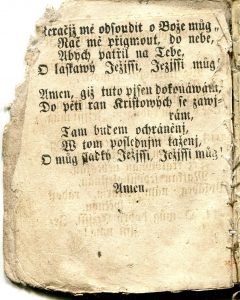 neračiž mě odsouditi o Bože můg,
Rač mě přigmout, do nebe,
Abych patřil na Tebe,
O laskawý Ježissi, Ježissi můg
Amen, giž tuto pjseň dokonáwám,
Do pěti ran Kristowých se zawj-
rám,
Tam budem ochráněnj,
W tom poslednjm taženj,
O můg sladký Ježissi, Ježissi můg!
Amen.